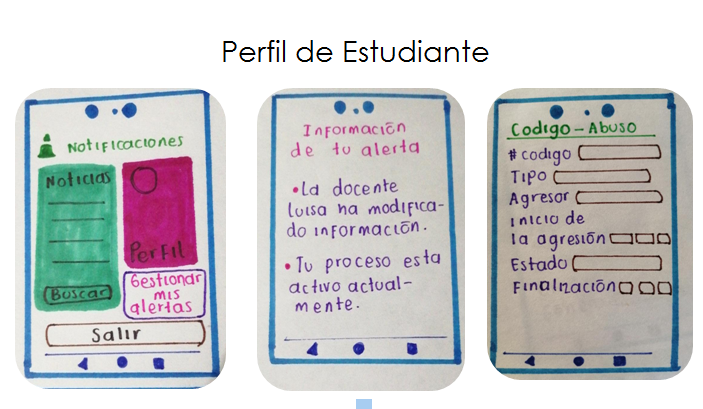 Perfil de Estudiante
Notificaciones
Noticias
Buscar
Perfil
Gestionar
mis
alertas
Salir
Información
de tu alerta
• La docente
Luisa ha modifica-
do información.
• Tu proceso esta
activo actual-
mente.
Codigo - Abuso
# codigo
Tipo
Agresor
Inicio de
la agresión
Estado
Finalización